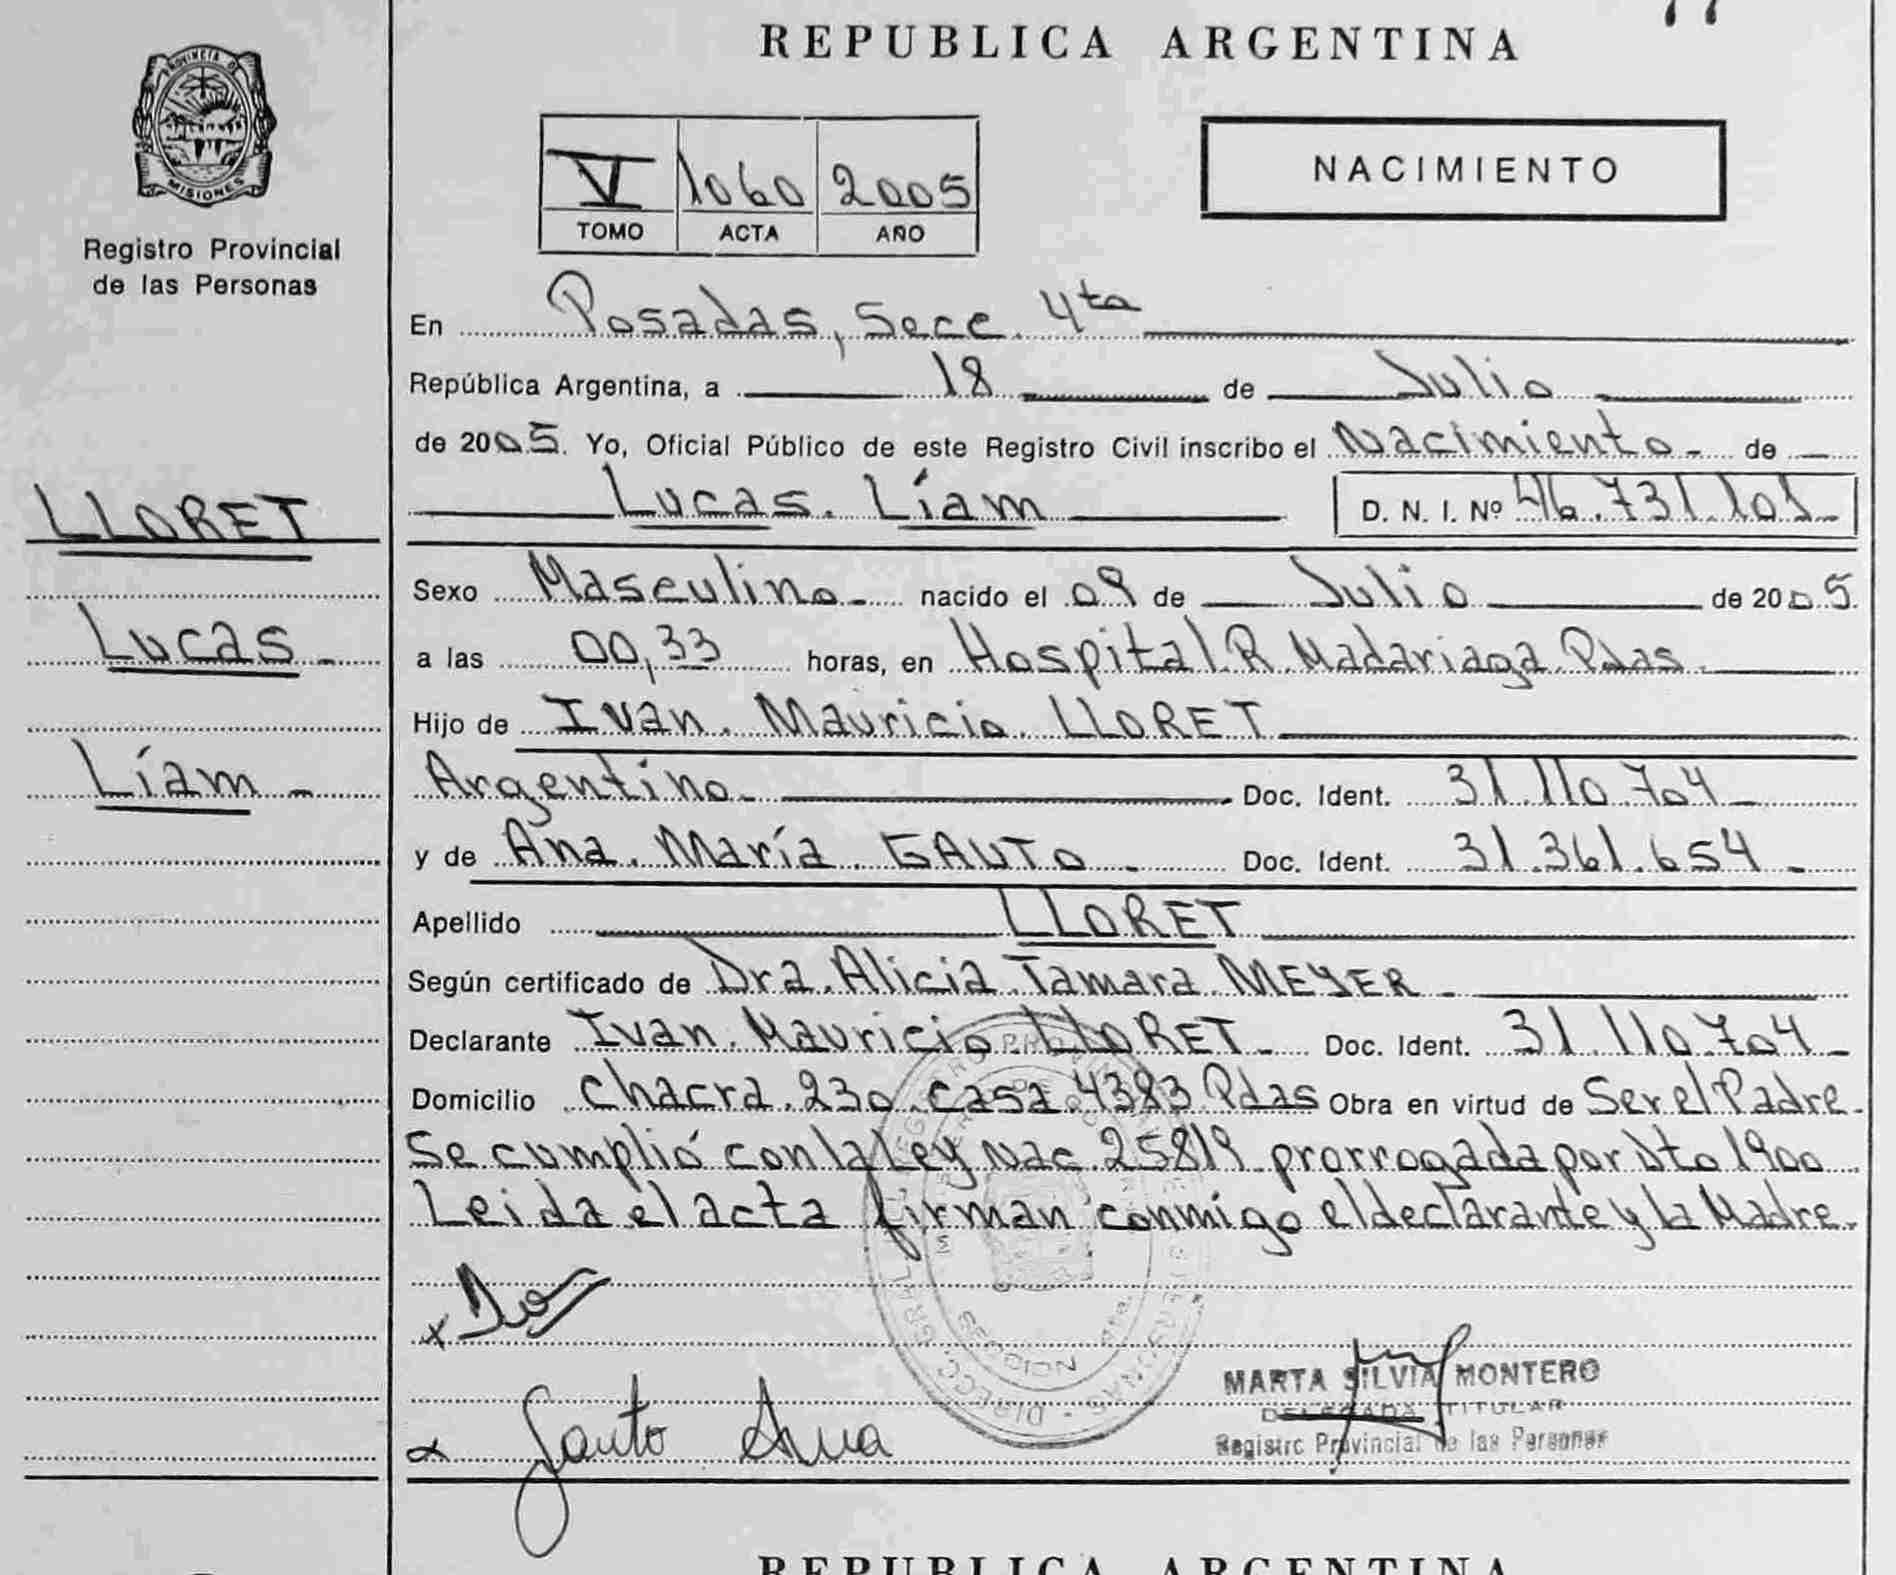 REPUBLICA ARGENTINA
PROVINCIA DE
MISIONES
Registro Provincial
de las Personas
V 1060 2005
TOMO ACTA AÑO
NACIMIENTO
En Posadas, Secc. 4ta
República Argentina, a 18 de Julio
de 2005. Yo, Oficial Público de este Registro Civil inscribo el Nacimiento - de
Lucas Líam D. N. I. Nº 46.731.101-
LLORET
Lucas -
Líam -
Sexo Masculino - nacido el 09 de Julio de 2005.
a las 00,33 horas, en Hospital R. Madariaga Pdas.
Hijo de Ivan Mauricio LLORET
Argentino - Doc. Ident. 31.110.704 -
y de Ana María GAUTO - Doc. Ident. 31.361.654 -
Apellido LLORET
Según certificado de Dra. Alicia Tamara MEYER -
Declarante Ivan Mauricio LLORET - Doc. Ident. 31.110.704 -
Domicilio Chacra 230 casa 4383 Pdas Obra en virtud de Ser el Padre -
Se cumplió con la Ley Nac 25819 prorrogada por Dto 1900
Leida el acta firman conmigo el declarante y la Madre.
Gauto Ana
MARTA SILVIA MONTERO
DELEGADA TITULAR
Registro Provincial de las Personas
REPUBLICA ARGENTINA